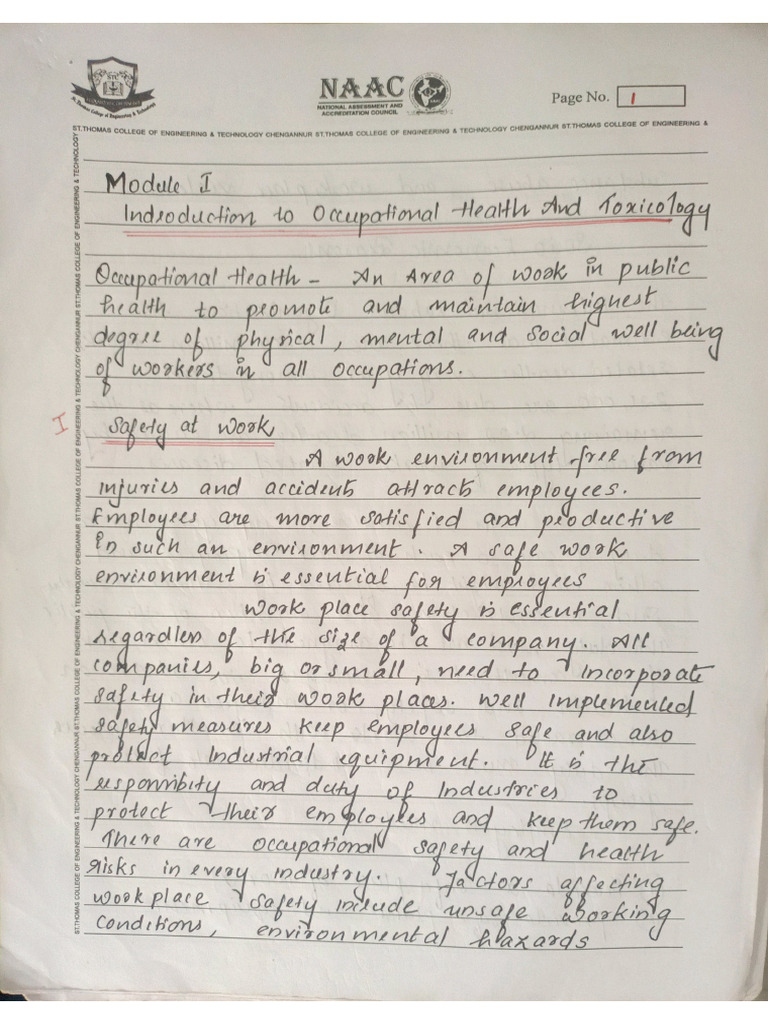 STC
St. Thomas College of Engineering & Technology
NAAC
NATIONAL ASSESSMENT AND
ACCREDITATION COUNCIL
Page No. 1
ST.THOMAS COLLEGE OF ENGINEERING & TECHNOLOGY CHENGANNUR ST.THOMAS COLLEGE OF ENGINEERING & TECHNOLOGY CHENGANNUR ST.THOMAS COLLEGE OF ENGINEERING &
ST.THOMAS COLLEGE OF ENGINEERING & TECHNOLOGY CHENGANNUR ST.THOMAS COLLEGE OF ENGINEERING & TECHNOLOGY CHENGANNUR ST.THOMAS COLLEGE OF ENGINEERING & TECHNOLOGY CHENGANNUR ST.THOMAS COLLEGE OF ENGINEERING & TECHNOLOGY
Module I
Indroduction to Occupational Health And Toxicology
Occupational Health - An Area of work in public
health to promote and maintain highest
degree of physical, mental and social well being
of workers in all occupations.
I
Safety at work
A work environment free from
injuries and accidents attracts employees.
Employees are more satisfied and productive
in such an environment. A safe work
environment is essential for employees
Work place safety is essential
regardless of the size of a company. All
companies, big or small, need to incorporate
safety in their work places. Well implemented
safety measures keep employees safe and also
protect Industrial equipment. It is the
responsibity and duty of Industries to
protect their employees and keep them safe.
There are occupational safety and health
risks in every industry. Factors affecting
workplace safety include unsafe working
conditions, environmental hazards